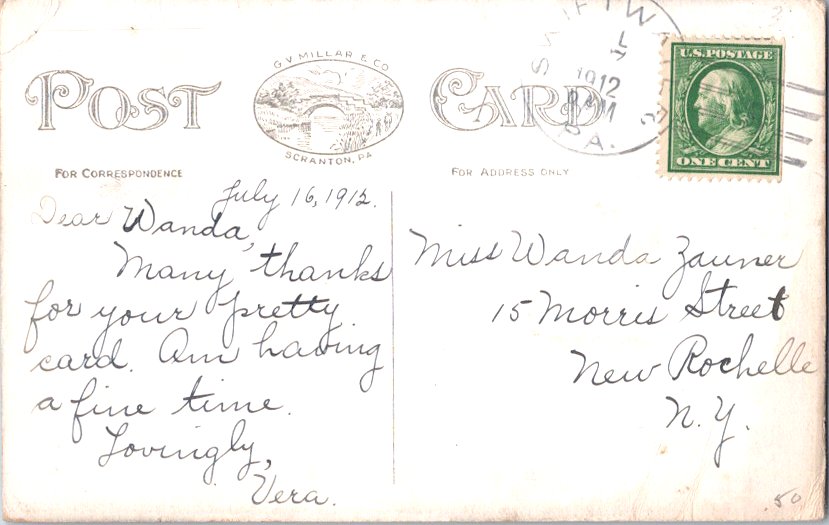 POST CARD
G.V. MILLAR & CO
SCRANTON, PA
FOR CORRESPONDENCE
FOR ADDRESS ONLY
PA.
1912
U.S. POSTAGE
ONE CENT
July 16, 1912.
Dear Wanda,
Many thanks
for your pretty
card. Am having
a fine time.
Lovingly,
Vera.
Miss Wanda Zauner
15 Morris Street
New Rochelle
N.Y.
.50